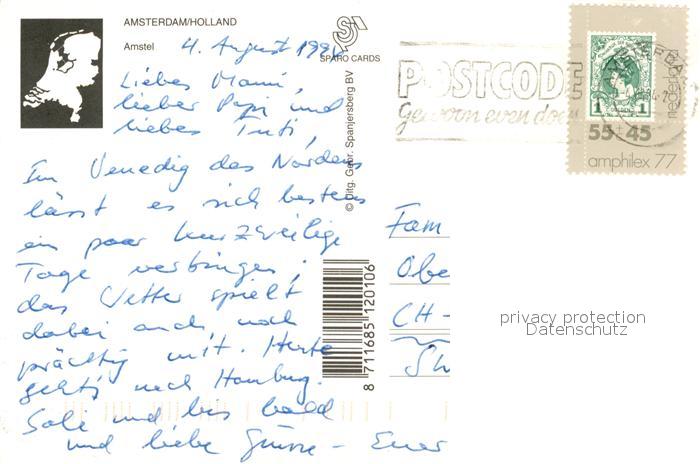 AMSTERDAM/HOLLAND
Amstel
4. August
SPARO CARDS
Liebes Mami,
lieber Papi und
liebes Tuti,
Im Venedig des Nordens
lässt es sich bestens
ein paar kurzweilige
Tage verbringen,
das Wetter spielt
dabei auch noch
prächtig mit. Heute
geht's nach Hamburg.
Sali und bis bald
und liebe Grüsse - Euer
© Uitg. Gebr. Spanjersberg BV
8 711685 120106
POSTCODE
Gewoon even doen
1 1
nederland
55+45
amphilex 77
Fam
Obe
CH-
privacy protection
Datenschutz